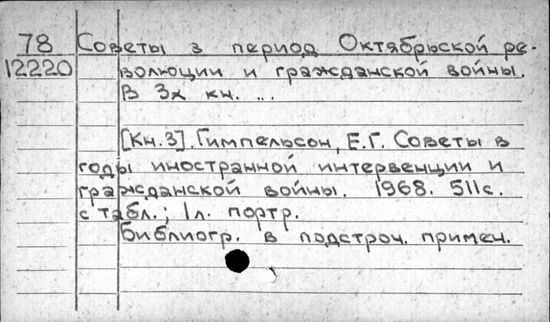 78 Советы в период Октябрьской ре-
12220 волюции и гражданской войны.
В 3х кн. ...
[Кн.3]. Гимпельсон, Е.Г. Советы в
годы иностранной интервенции и
гражданской войны. 1968. 511с.
с табл.; 1л. портр.
Библиогр. в подстроч. примеч.